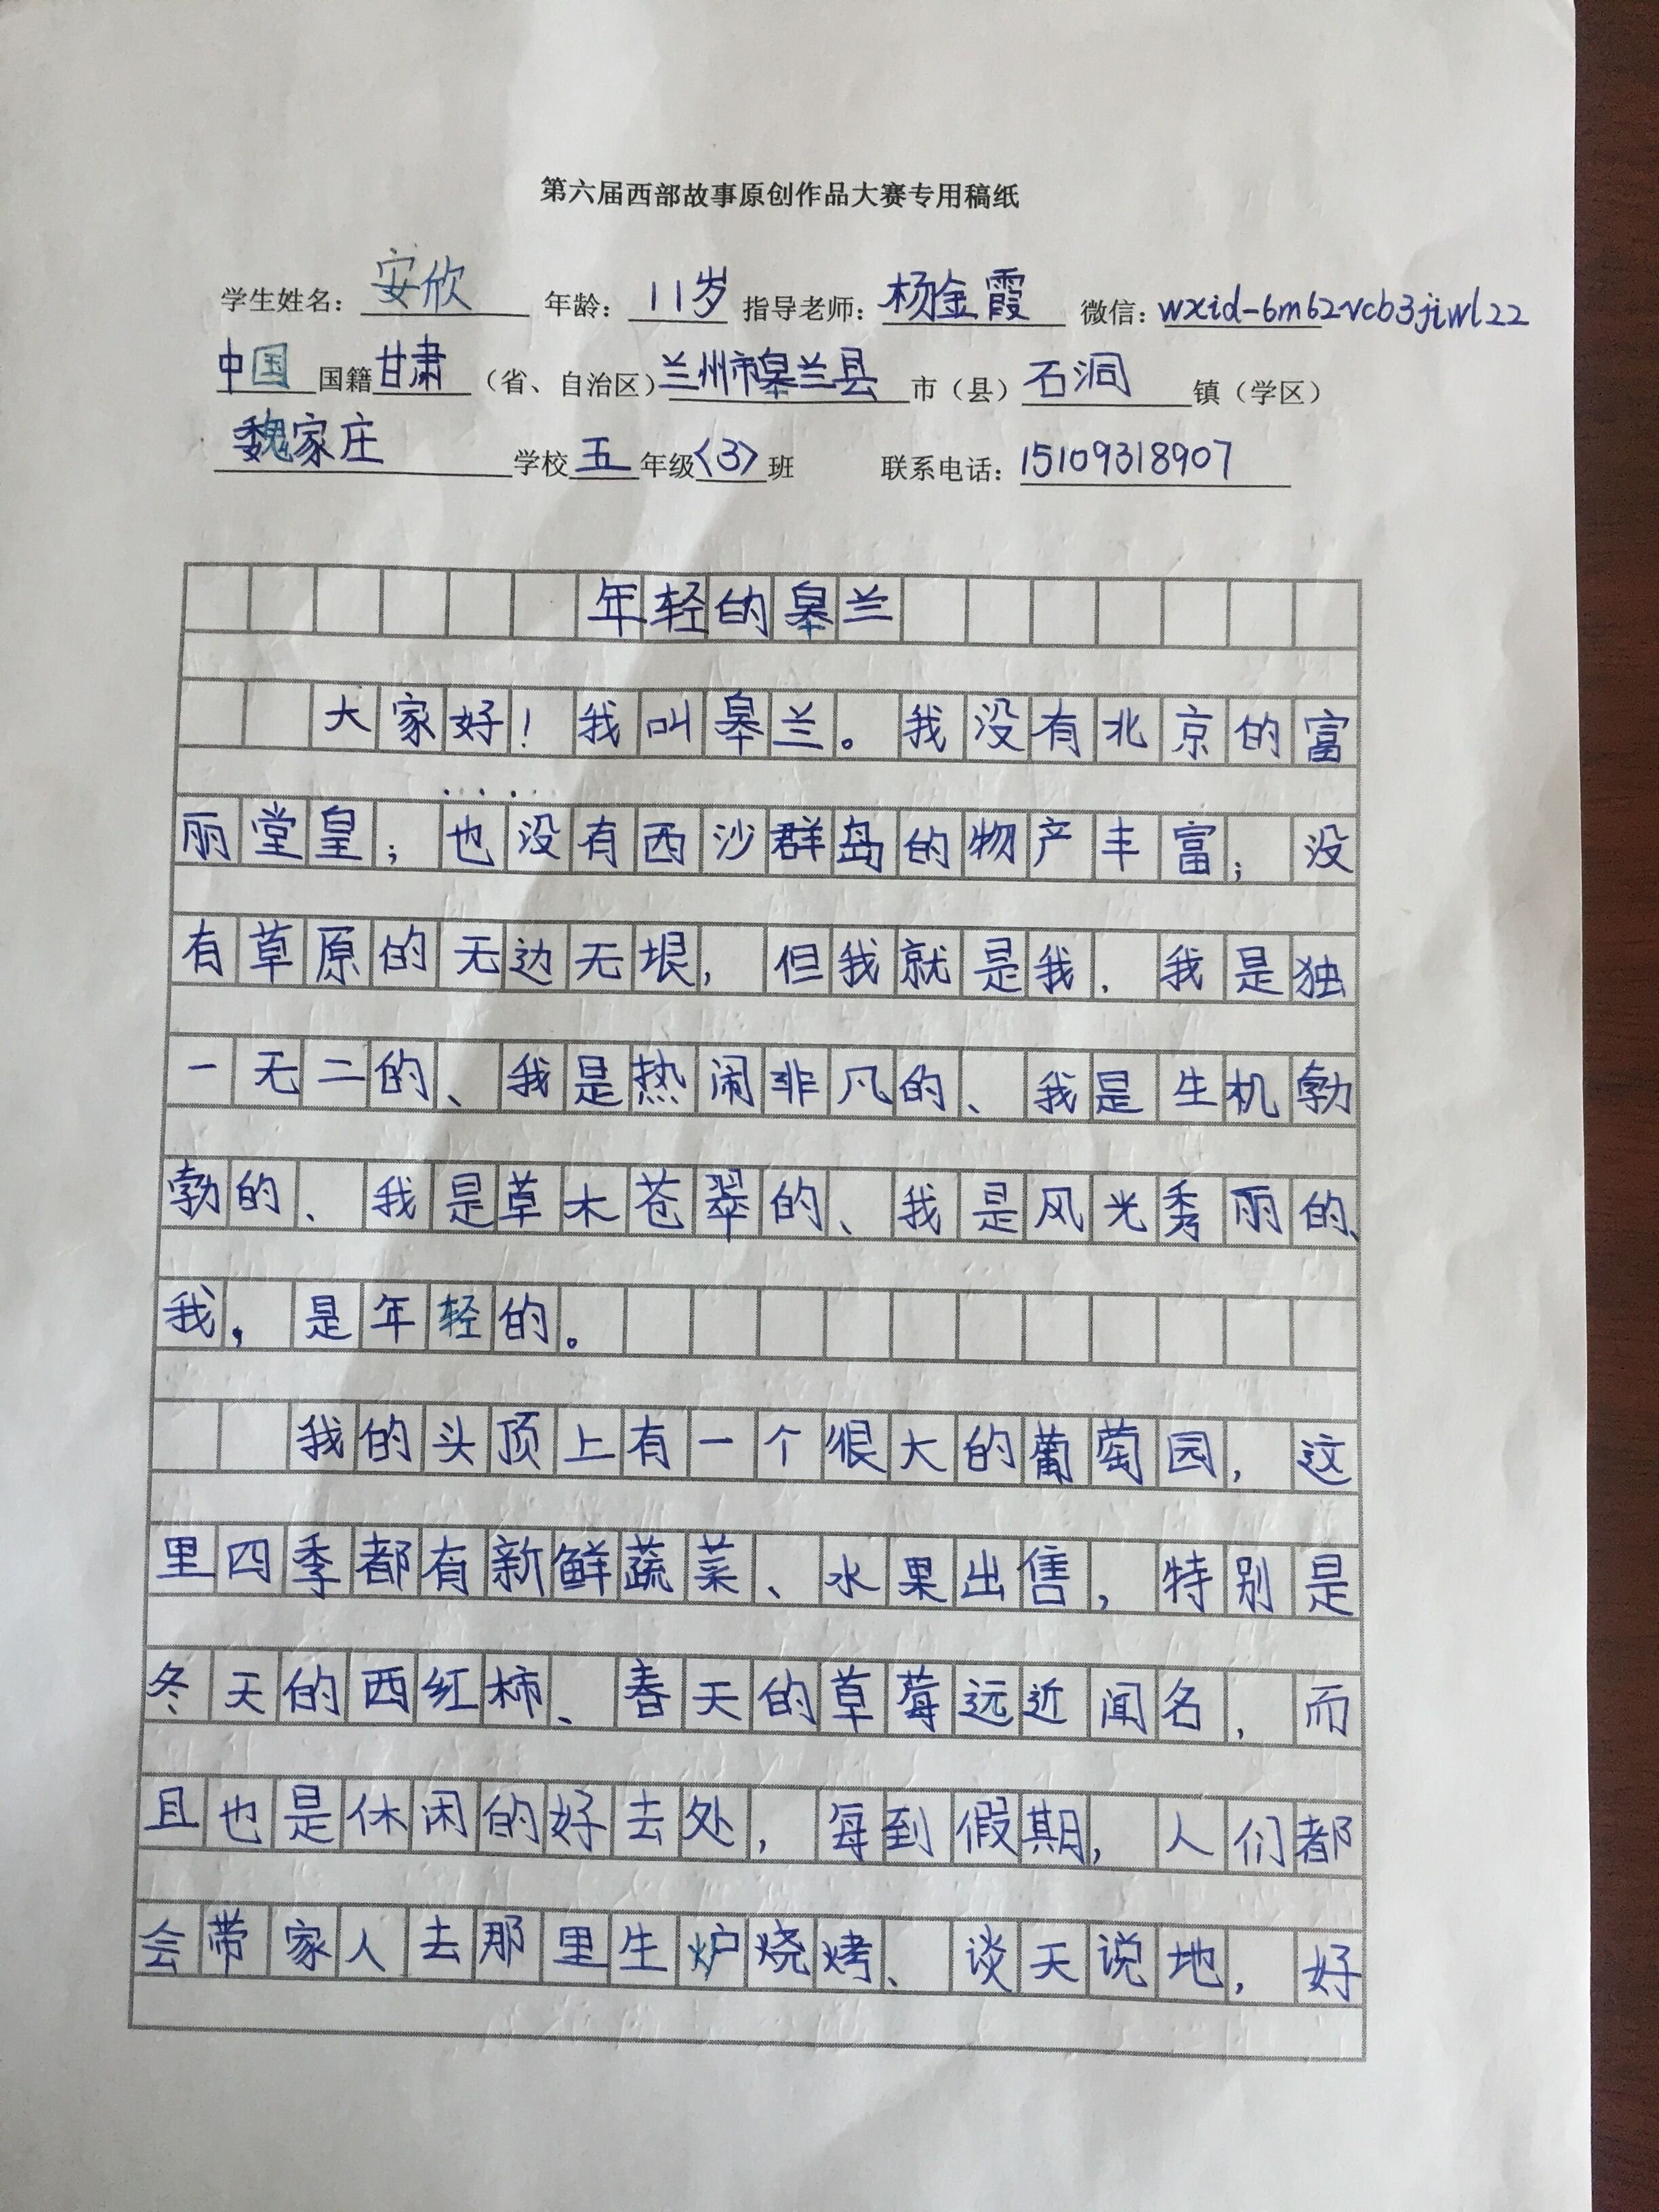 第六届西部故事原创作品大赛专用稿纸
学生姓名：安欣 年龄：11岁 指导老师：杨金霞 微信：wxid-6m62vcb3jiwl22
中国国籍甘肃（省、自治区）兰州市皋兰县市（县）石洞镇（学区）
魏家庄学校五年级〈3〉班 联系电话：15109318907
年轻的皋兰
大家好！我叫皋兰。我没有北京的富
丽堂皇；也没有西沙群岛的物产丰富；没
有草原的无边无垠，但我就是我．我是独
一无二的、我是热闹非凡的、我是生机勃
勃的、我是草木苍翠的、我是风光秀丽的、
我，是年轻的。
我的头顶上有一个很大的葡萄园，这
里四季都有新鲜蔬菜、水果出售，特别是
冬天的西红柿、春天的草莓远近闻名，而
且也是休闲的好去处，每到假期，人们都
会带家人去那里生炉烧烤、谈天说地，好